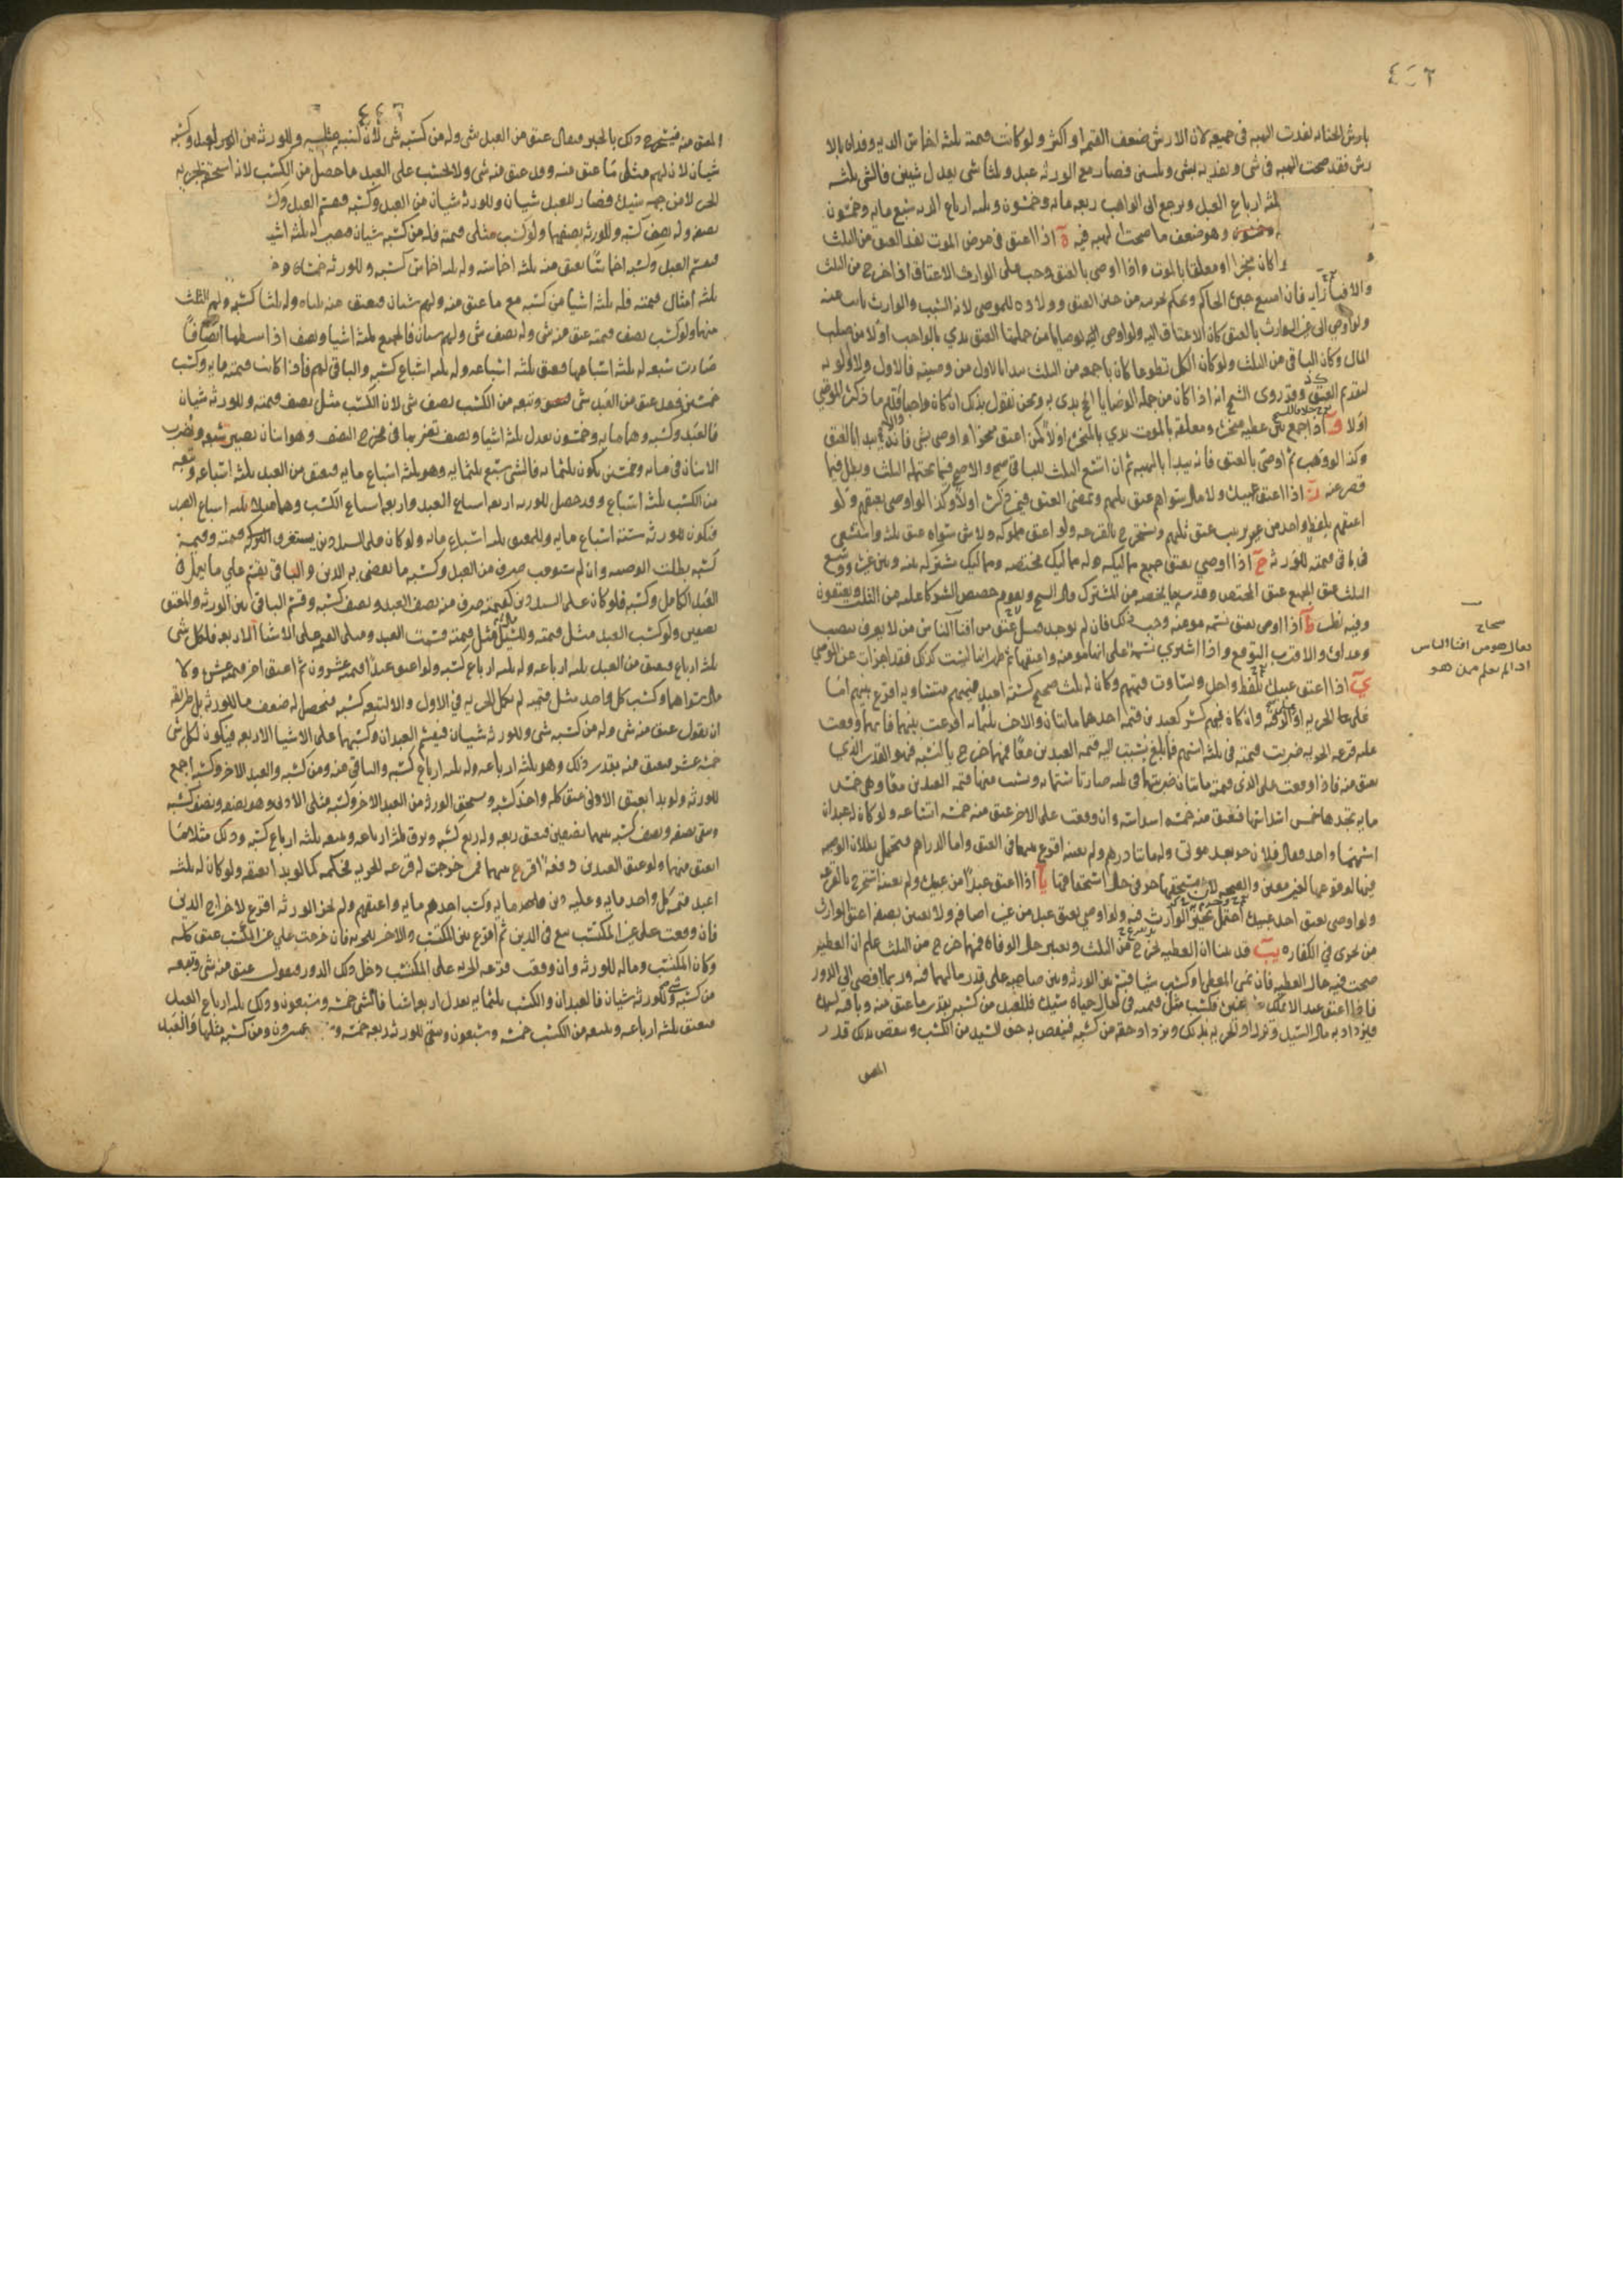 بارش الجنايه نفدت الهبه فى جميعه لان الارش ضعف القيمه او اكثر ولو كانت قيمته ثلثه اخماس الديه وفداه بالا
رش فقد صحت الهبه فى شى ويفديه بشى وثلثى فصار مع الورثه عبد وثلثا شى يعدل شيئين فالشى ثلثه
ثلثه ارباع العبد ويرجع الى الواهب ربعه مايه وخمسون وثلثه ارباع الديه سبع مايه وخمسون
وهو ضعف ما صحت الهبه فيه ة اذا اعتق فى مرض الموت نفد العتق من الثلث
كان منجزا او معلقا بالموت واذا اوصى بالعتق وجب على الوارث الاعتاق اذا خرج من الثلث
فان امتنع جبره الحاكم ويحكم بحريته من حين العتق وولاده للموصى لانه السبب والوارث نايب عنه
ولو اوصى الى غير الوارث بالعتق كان الاعتاق اليه ولو اوصى بوصايا من جملتها العتق بدى بالواجب اولا من صلب
المال وكان الباقى من الثلث ولو كان الكل تطوعا كان باجمعه من الثلث يبدا بالاول من وصيته فالاول ولا اولويه
لتقدم العتق وقد روى الشيخ انه اذا كان من جمله الوصايا الحج بدى به ونحن نقول بذلك ان كان واجبا قدم ما ذكره الموصى
اولا و اذا جمع بين عطيه منجزه ومعلقه بالموت بدى بالمنجزه اولا كمن اعتق منجزا واوصى بشى فانه يبدا بالعتق
وكذا لو وهب ثم اوصى بالعتق فانه يبدا بالهبه ثم ان اتسع الثلث للباقى صح والا صح فيما يحتمله الثلث وبطل فيما
قصر عنه ز اذا اعتق عبيده ولا مال سواهم عتق ثلثهم ويمضى العتق فيمن ذكره اولا وكذا لو اوصى بعتقهم ولو
اعتقهم بلفظ واحد من غير ترتيب عتق ثلثهم ويستخرج بالقرعه ولو اعتق مملوكه ولا شى سواه عتق ثلثه واستسعى
فى باقى قيمته للورثه ح اذا اوصى بعتق جميع مماليكه وله مماليك مختصه ومماليك مشتركه بينه وبين غيره ووسع
الثلث عتق الجميع عتق المختص وقدر ما يخصه من المشترك وقال الشيخ ويقوم حصص الشركا عليه من الثلث ويعتقون
وفيه نظر ط اذا اوصى بعتق نسمه مومنه وجب ذلك فان لم يوجد قيل عتق من افنا الناس من لا يعرف بنصب
وعداوه والاقرب التوقع واذا اشترى نسمه على انها مومنه واعتقها ثم ظهر انها ليست كذلك فقد اجزات عن الموصى
ى اذا اعتق عبيده بلفظ واحد وتساوت قيمتهم وكان له ثلث صحيح كسته اعبد قيمتهم متساويه اقرع بينهم اما
على الحريه او الرقيه وان كان فيهم كسر كعبدين قيمه احدهما مائتان والاخر ثلثمايه اقرعت بينهما فايهما وقعت
عليه قرعه الحريه ضربت قيمته فى ثلثه اسهم فما بلغ نسبت اليه قيمه العبدين معا فمهما خرج بالنسبه فهو القدر الذى
يعتق منه فاذا وقعت على الذى قيمته مائتان ضربتها فى ثلثه صارت ستمايه ونسبت منها قيمه العبدين معا وهى خمس
مايه تجدها خمسه اسداسها فيعتق منه خمسه اسداسه وان وقعت على الاخر عتق منه خمسه اتساعه ولو كان له عبدان
اسمهما واحد فقال فلان حر بعد موتى وله مائتا درهم ولم يعينه اقرع بينهما فى العتق واما الدراهم فيحتمل بطلان الوصيه
فيها لوقوعها لغير معين والصحه لان مستحقها حر فى حال استحقاقها يا اذا اعتق عبدا من عبيده ولم يعينه استخرج بالقرعه
ولو اوصى بعتق احد عبيده احتمل تخيير الوارث فيه ولو اوصى بعتق عبد من غير اضافه ولا تعيين بصفه اعتق الوارث
من يجزى فى الكفاره يب قد بينا ان العطيه تخرج من الثلث ويعتبر حال الوفاه فمهما خرج من الثلث علم ان العطيه
صحت فيه حال العطيه فان نمى المعطى او كسب شيا قسم بين الورثه وبين صاحبه على قدر ما لهما فيه وربما افضى الى الدور
فاذا اعتق عبدا لا يملك غيره فكسب مثل قيمته فى حال حياه سيده فللعبد من كسبه بقدر ما عتق منه وباقيه لسيده
فيزداد به مال السيد وتزداد الحريه بذلك ويزداد حقه من كسبه فينقص به حق السيد من الكسب وينقص بذلك قدر
المعتق
صحاح
يقال هو من افنا الناس
اذا لم يعلم ممن هو
المعتق منه فيستخرج ذلك بالجبر فيقال عتق من العبد شى وله من كسبه شى لان كسبه مثله وللورثه من العبد وكسبه
شيان لان لهم مثلى ما عتق منه وقد عتق منه شى ولا يحسب على العبد ما حصل من الكسب لانه استحقه بجزيه
الحر لا من جهه سيده فصار للعبد شيان وللورثه شيان من العبد وكسبه فيقسم العبد
نصفه وله نصف كسبه وللورثه نصفهما ولو كسب مثلى قيمته فله من كسبه شيان فيصير له ثلثه
فيقسم العبد وكسبه اخماسا يعتق منه ثلثه اخماسه وله ثلثه اخماس كسبه وللورثه خمسان
ثلثه امثال قيمته فله ثلثه اشيا من كسبه مع ما عتق منه ولهم شيان فيعتق منه ثلثاه وله ثلثا كسبه ولهم الثلث
منهما ولو كسب نصف قيمته عتق منه شى وله نصف شى ولهم شيان فالجميع ثلثه اشيا ونصف اذا بسطها انصافا
صارت سبعه له ثلثه اسباعها فيعتق ثلثه اسباعه وله ثلثه اسباع كسبه والباقى لهم فاذا كانت قيمته مايه وكسب
خمسين فقد عتق من العبد شى وتبعه من الكسب نصف شى لان الكسب مثل نصف قيمته وللورثه شيان
فالعبد وكسبه وهما مايه وخمسون يعدل ثلثه اشيا ونصف تضربها فى مخرج النصف وهو اثنان تصير سبعه وتضرب
الاثنان فى مايه وخمسين يكون ثلثمايه فالشى سبع ثلثمايه وهو ثلثه اسباع مايه فيعتق من العبد ثلثه اسباعه وتبعه
من الكسب ثلثه اسباع وقد حصل للورثه اربعه اسباع العبد واربعه اسباع الكسب وهما مثلا ثلثه اسباع العبد
فيكون للورثه سته اسباع مايه وللمعتق ثلثه اسباع مايه ولو كان على السيد دين يستغرق التركه قيمته وقيمه
كسبه بطلت الوصيه وان لم يستوعب صرف من العبد وكسبه ما يقضى به الدين والباقى يقسم على ما يعمل فى
العبد الكامل وكسبه فلو كان على السيد دين كقيمته صرف فيه نصف العبد ونصف كسبه وقسم الباقى بين الورثه والمعتق
نصفين ولو كسب العبد مثل قيمته وللسيد مثل قيمته قسمت العبد ومثلى القيمه على الاشيا الاربعه فلكل شى
ثلثه ارباع فيعتق من العبد ثلثه ارباعه وله ثلثه ارباع كسبه ولو اعتق عبدا قيمته عشرون ثم اعتق اخر قيمته عشره ولا
مال سواهما وكسب كل واحد مثل قيمته لم تكمل الحريه فى الاول والا لتبعه كسبه فيحصل له ضعف ما للورثه بل طريقه
ان تقول عتق منه شى وله من كسبه شى وللورثه شيان فيقسم العبدان وكسبهما على الاشيا الاربعه فيكون لكل شى
خمسه عشر فيعتق منه بقدر ذلك وهو ثلثه ارباعه وله ثلثه ارباع كسبه والباقى منه ومن كسبه والعبد الاخر وكسبه اجمع
للورثه ولو بدا بعتق الادنى عتق كله واخذ كسبه ويستحق الورثه من العبد الاخر وكسبه مثلى الادنى وهو نصفه ونصف كسبه
ويبقى نصفه ونصف كسبه بينهما نصفين فيعتق ربعه وله ربع كسبه ويرق ثلثه ارباعه وتبعه ثلثه ارباع كسبه وذلك مثلا ما
اعتق منهما ولو اعتق العبدين دفعه اقرع بينهما فمن خرجت له قرعه الحريه فحكمه كما لو بدا بعتقه ولو كان له ثلثه
اعبد قيمه كل واحد مايه وعليه دين مايه وكسب احدهم مايه واعتقهم ولم يجز الورثه اقرع لاخراج الدين
فان وقعت على غير المكتسب بيع فى الدين ثم اقرع بين المكتسب والاخر للحريه فان خرجت على غير المكتسب عتق كله
وكان المكتسب وماله للورثه وان وقعت قرعه الحريه على المكتسب دخل ذلك الدور فيقول عتق منه شى وتبعه
من كسبه شى وللورثه شيان فالعبدان والكسب ثلثمايه يعدل اربعه اشيا فالشى خمسه وسبعون وذلك ثلثه ارباع العبد
فيعتق ثلثه ارباعه وتبعه من الكسب خمسه وسبعون ويبقى للورثه ربعه خمسه وعشرون ومن كسبه مثلها والعبد